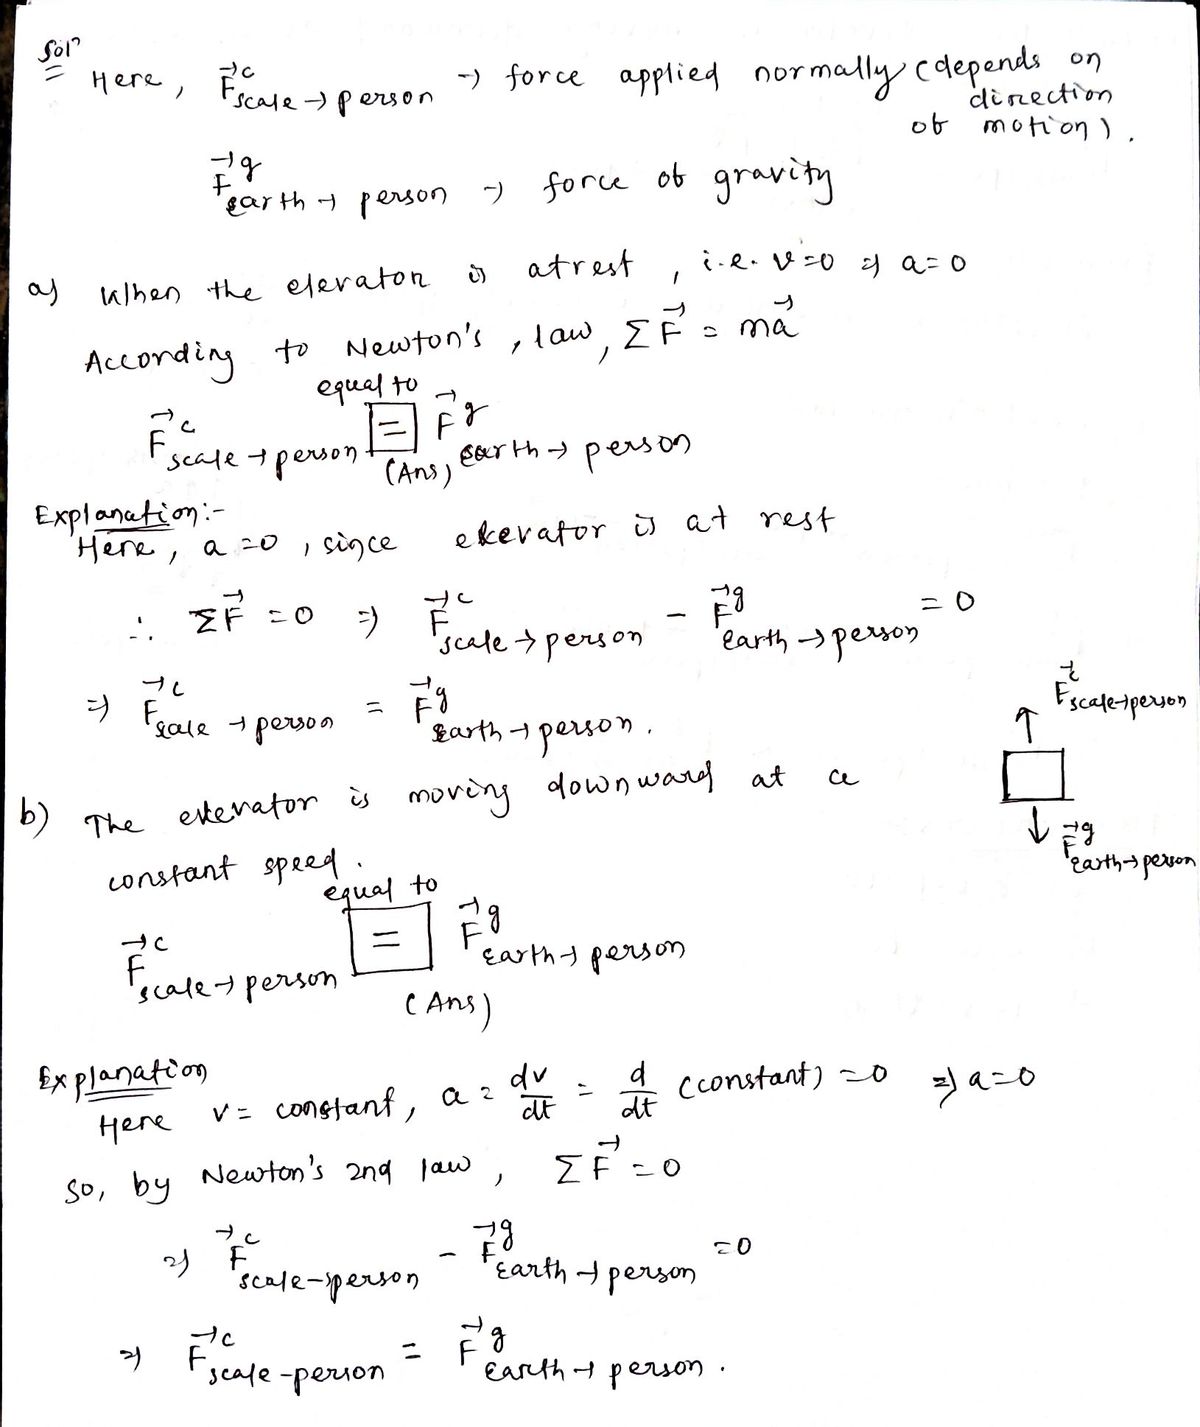 Solⁿ
Here, F⃗ᶜ scale → person → force applied normally (depends on
direction
of motion).
F⃗ᵍ earth → person → force of gravity
a) When the elevator is at rest, i.e. v=0 ⇒ a=0
According to Newton's, law, ΣF⃗ = ma⃗
equal to
F⃗ᶜ scale → person = F⃗ᵍ earth → person
(Ans)
Explanation:-
Here, a=0, since ekevator is at rest
∴ ΣF⃗ = 0 ⇒ F⃗ᶜ scale → person - F⃗ᵍ earth → person = 0
⇒ F⃗ᶜ scale → person = F⃗ᵍ earth → person.
F⃗ᶜ scale → person
F⃗ᵍ earth → person
b) The ekevator is moving downward at a
constant speed.
equal to
F⃗ᶜ scale → person = F⃗ᵍ Earth → person
(Ans)
Explanation
Here v = constant, a = dv/dt = d/dt (constant) = 0 ⇒ a=0
So, by Newton's 2nd law, ΣF⃗ = 0
⇒ F⃗ᶜ scale → person - F⃗ᵍ Earth → person = 0
⇒ F⃗ᶜ scale - person = F⃗ᵍ Earth → person.